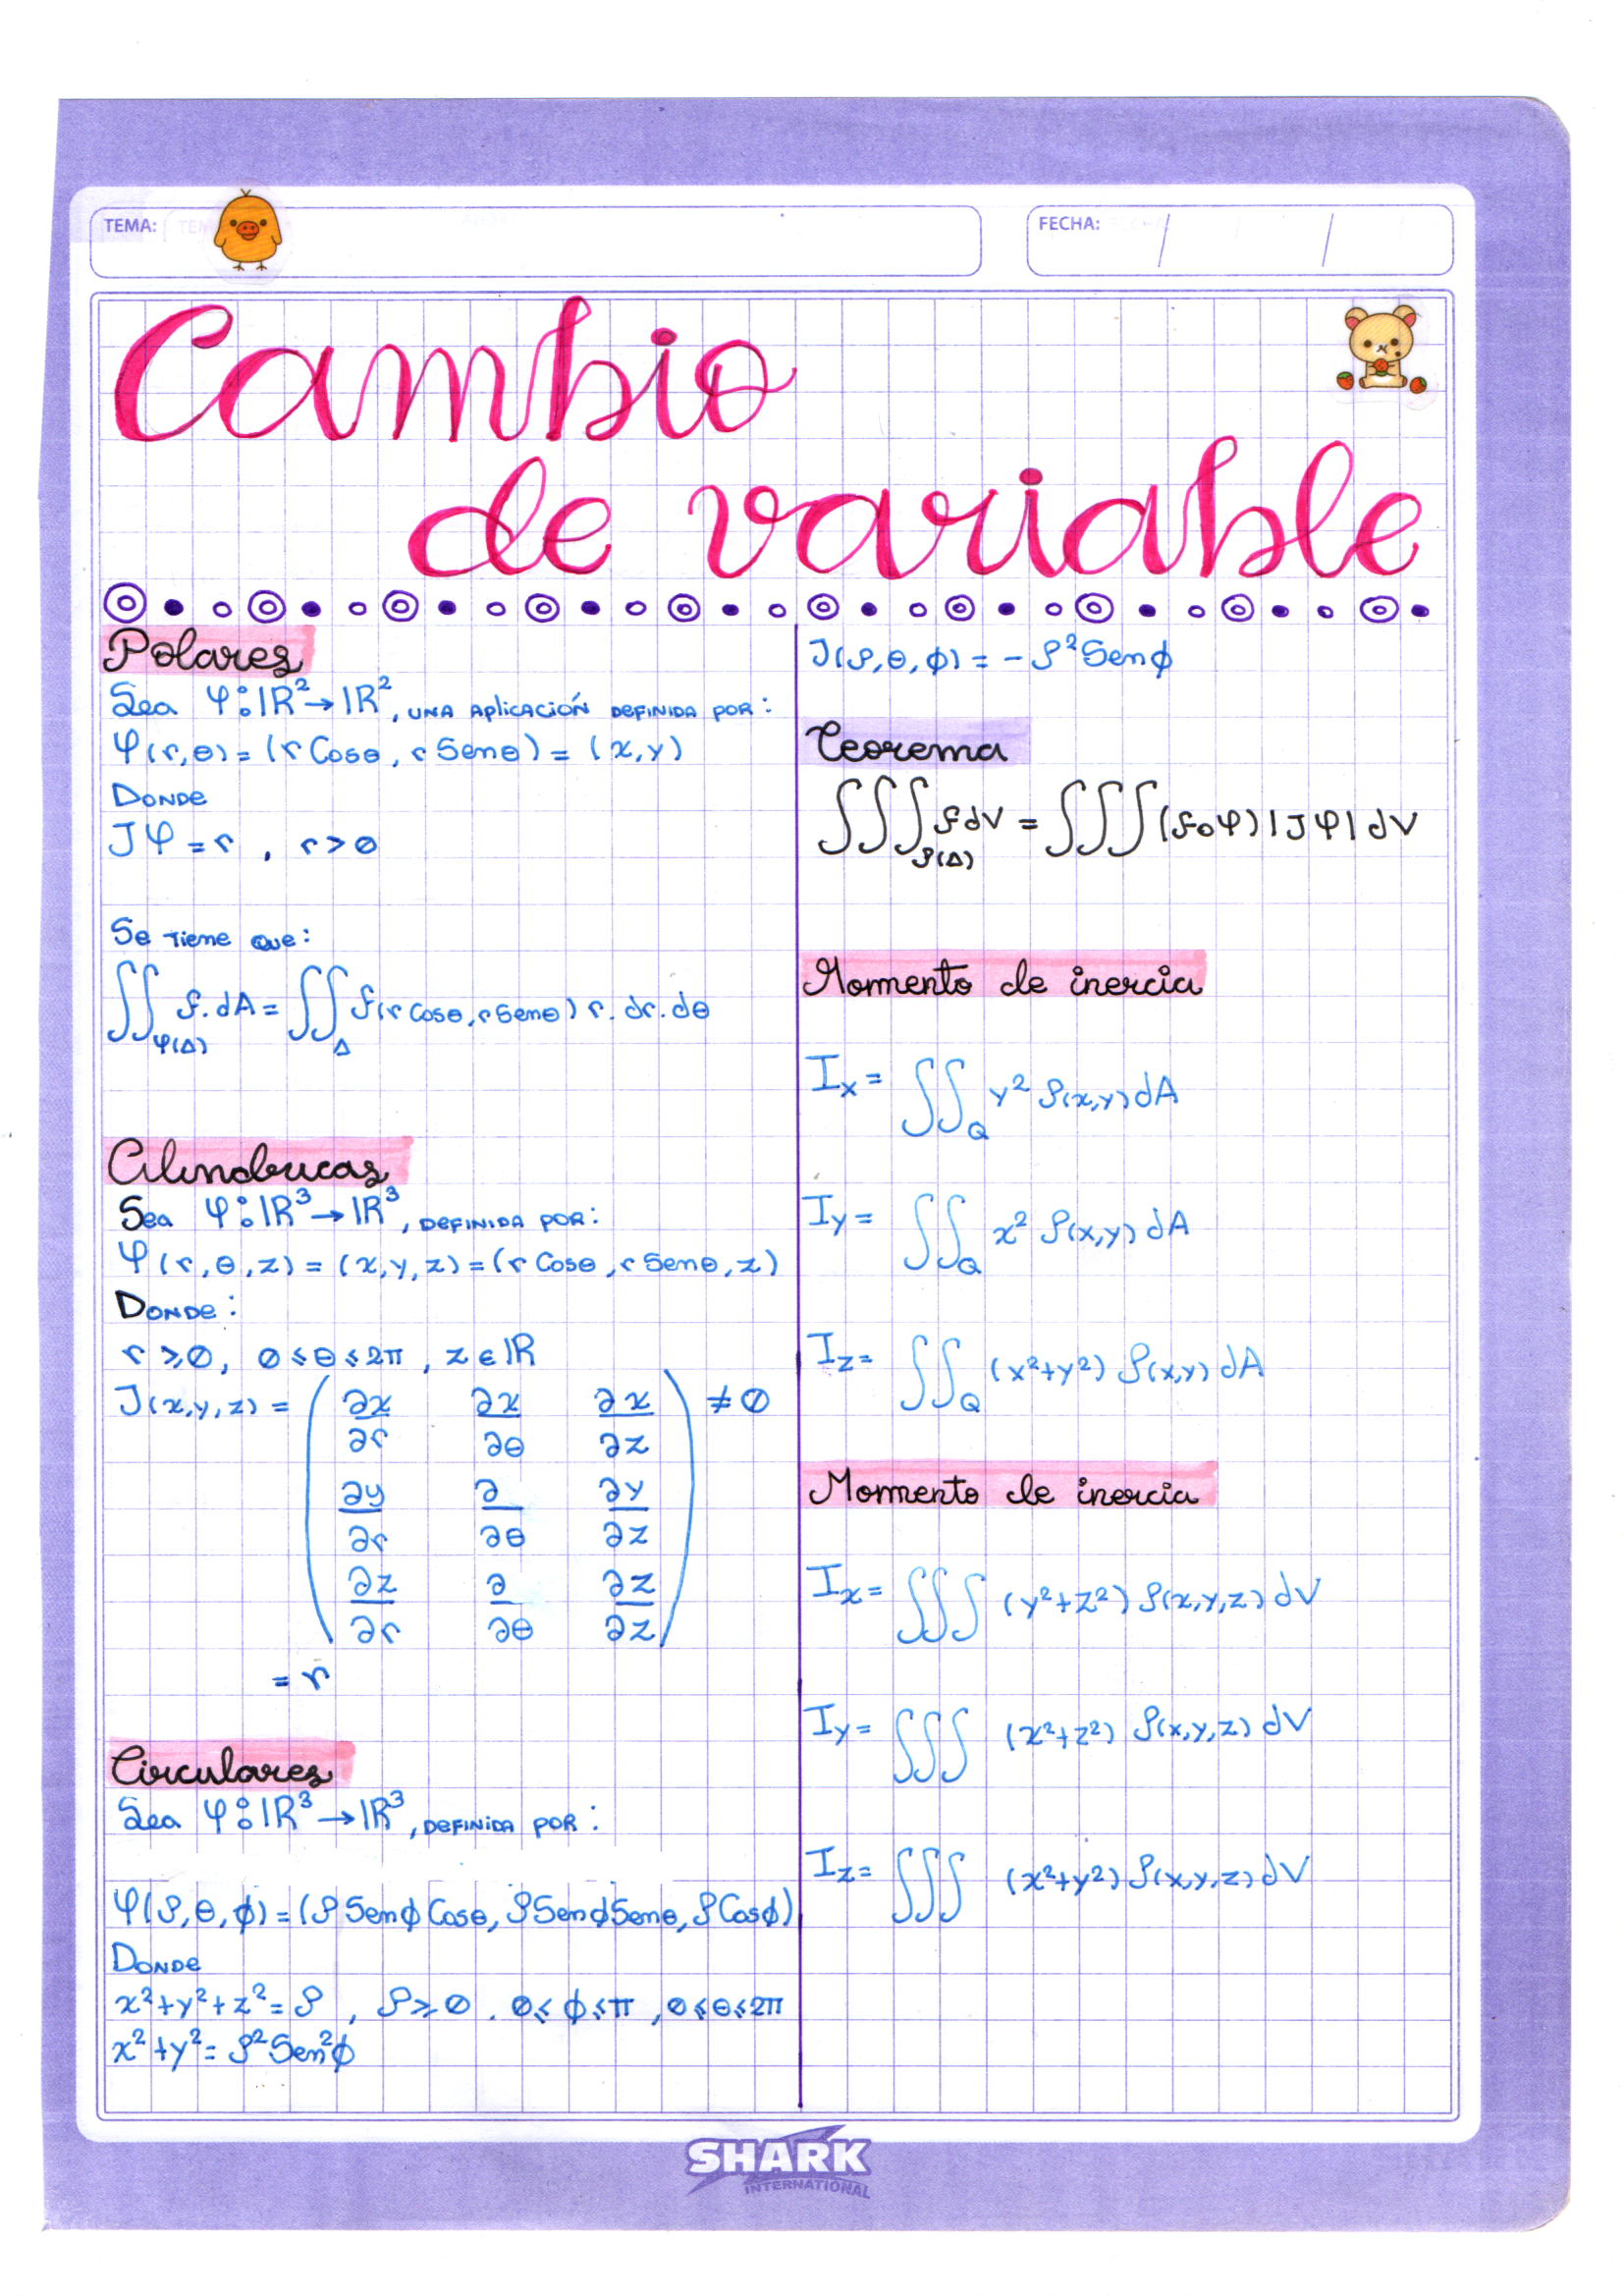 TEMA:
FECHA: / /
Cambio
de variable
Polares
Sea φ: IR² → IR², una aplicación definida por:
φ(r,θ) = (r Cosθ, r Senθ) = (x,y)
Donde
Jφ = r , r > 0
Se tiene que:
∬_φ(Δ) f. dA = ∬_Δ f(r Cosθ, r Senθ) r. dr. dθ
Cilindricas
Sea φ: IR³ → IR³, definida por:
φ(r,θ,z) = (x,y,z) = (r Cosθ, r Senθ, z)
Donde:
r ≥ 0, 0 ≤ θ ≤ 2π, z ∈ IR
J(x,y,z) = ( ∂x/∂r ∂x/∂θ ∂x/∂z ) ≠ 0
∂y/∂r ∂/∂θ ∂y/∂z
∂z/∂r ∂/∂θ ∂z/∂z
= r
Circulares
Sea φ: IR³ → IR³, definida por:
φ(ρ,θ,ϕ) = (ρ Senϕ Cosθ, ρ Senϕ Senθ, ρ Cosϕ)
Donde
x²+y²+z² = ρ , ρ ≥ 0 . 0 ≤ ϕ ≤ π , 0 ≤ θ ≤ 2π
x²+y² = ρ² Sen²ϕ
J(ρ,θ,ϕ) = - ρ² Senϕ
Teorema
∭_ρ(Δ) f dV = ∭ (f∘φ) |Jφ| dV
Momento de inercia
Ix = ∬_Q y² ρ(x,y) dA
Iy = ∬_Q x² ρ(x,y) dA
Iz = ∬_Q (x²+y²) ρ(x,y) dA
Momento de inercia
Ix = ∭ (y²+z²) ρ(x,y,z) dV
Iy = ∭ (x²+z²) ρ(x,y,z) dV
Iz = ∭ (x²+y²) ρ(x,y,z) dV
SHARK
INTERNATIONAL